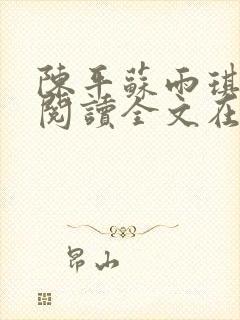 陳平蘇雨琪
閱讀全文在
昂山